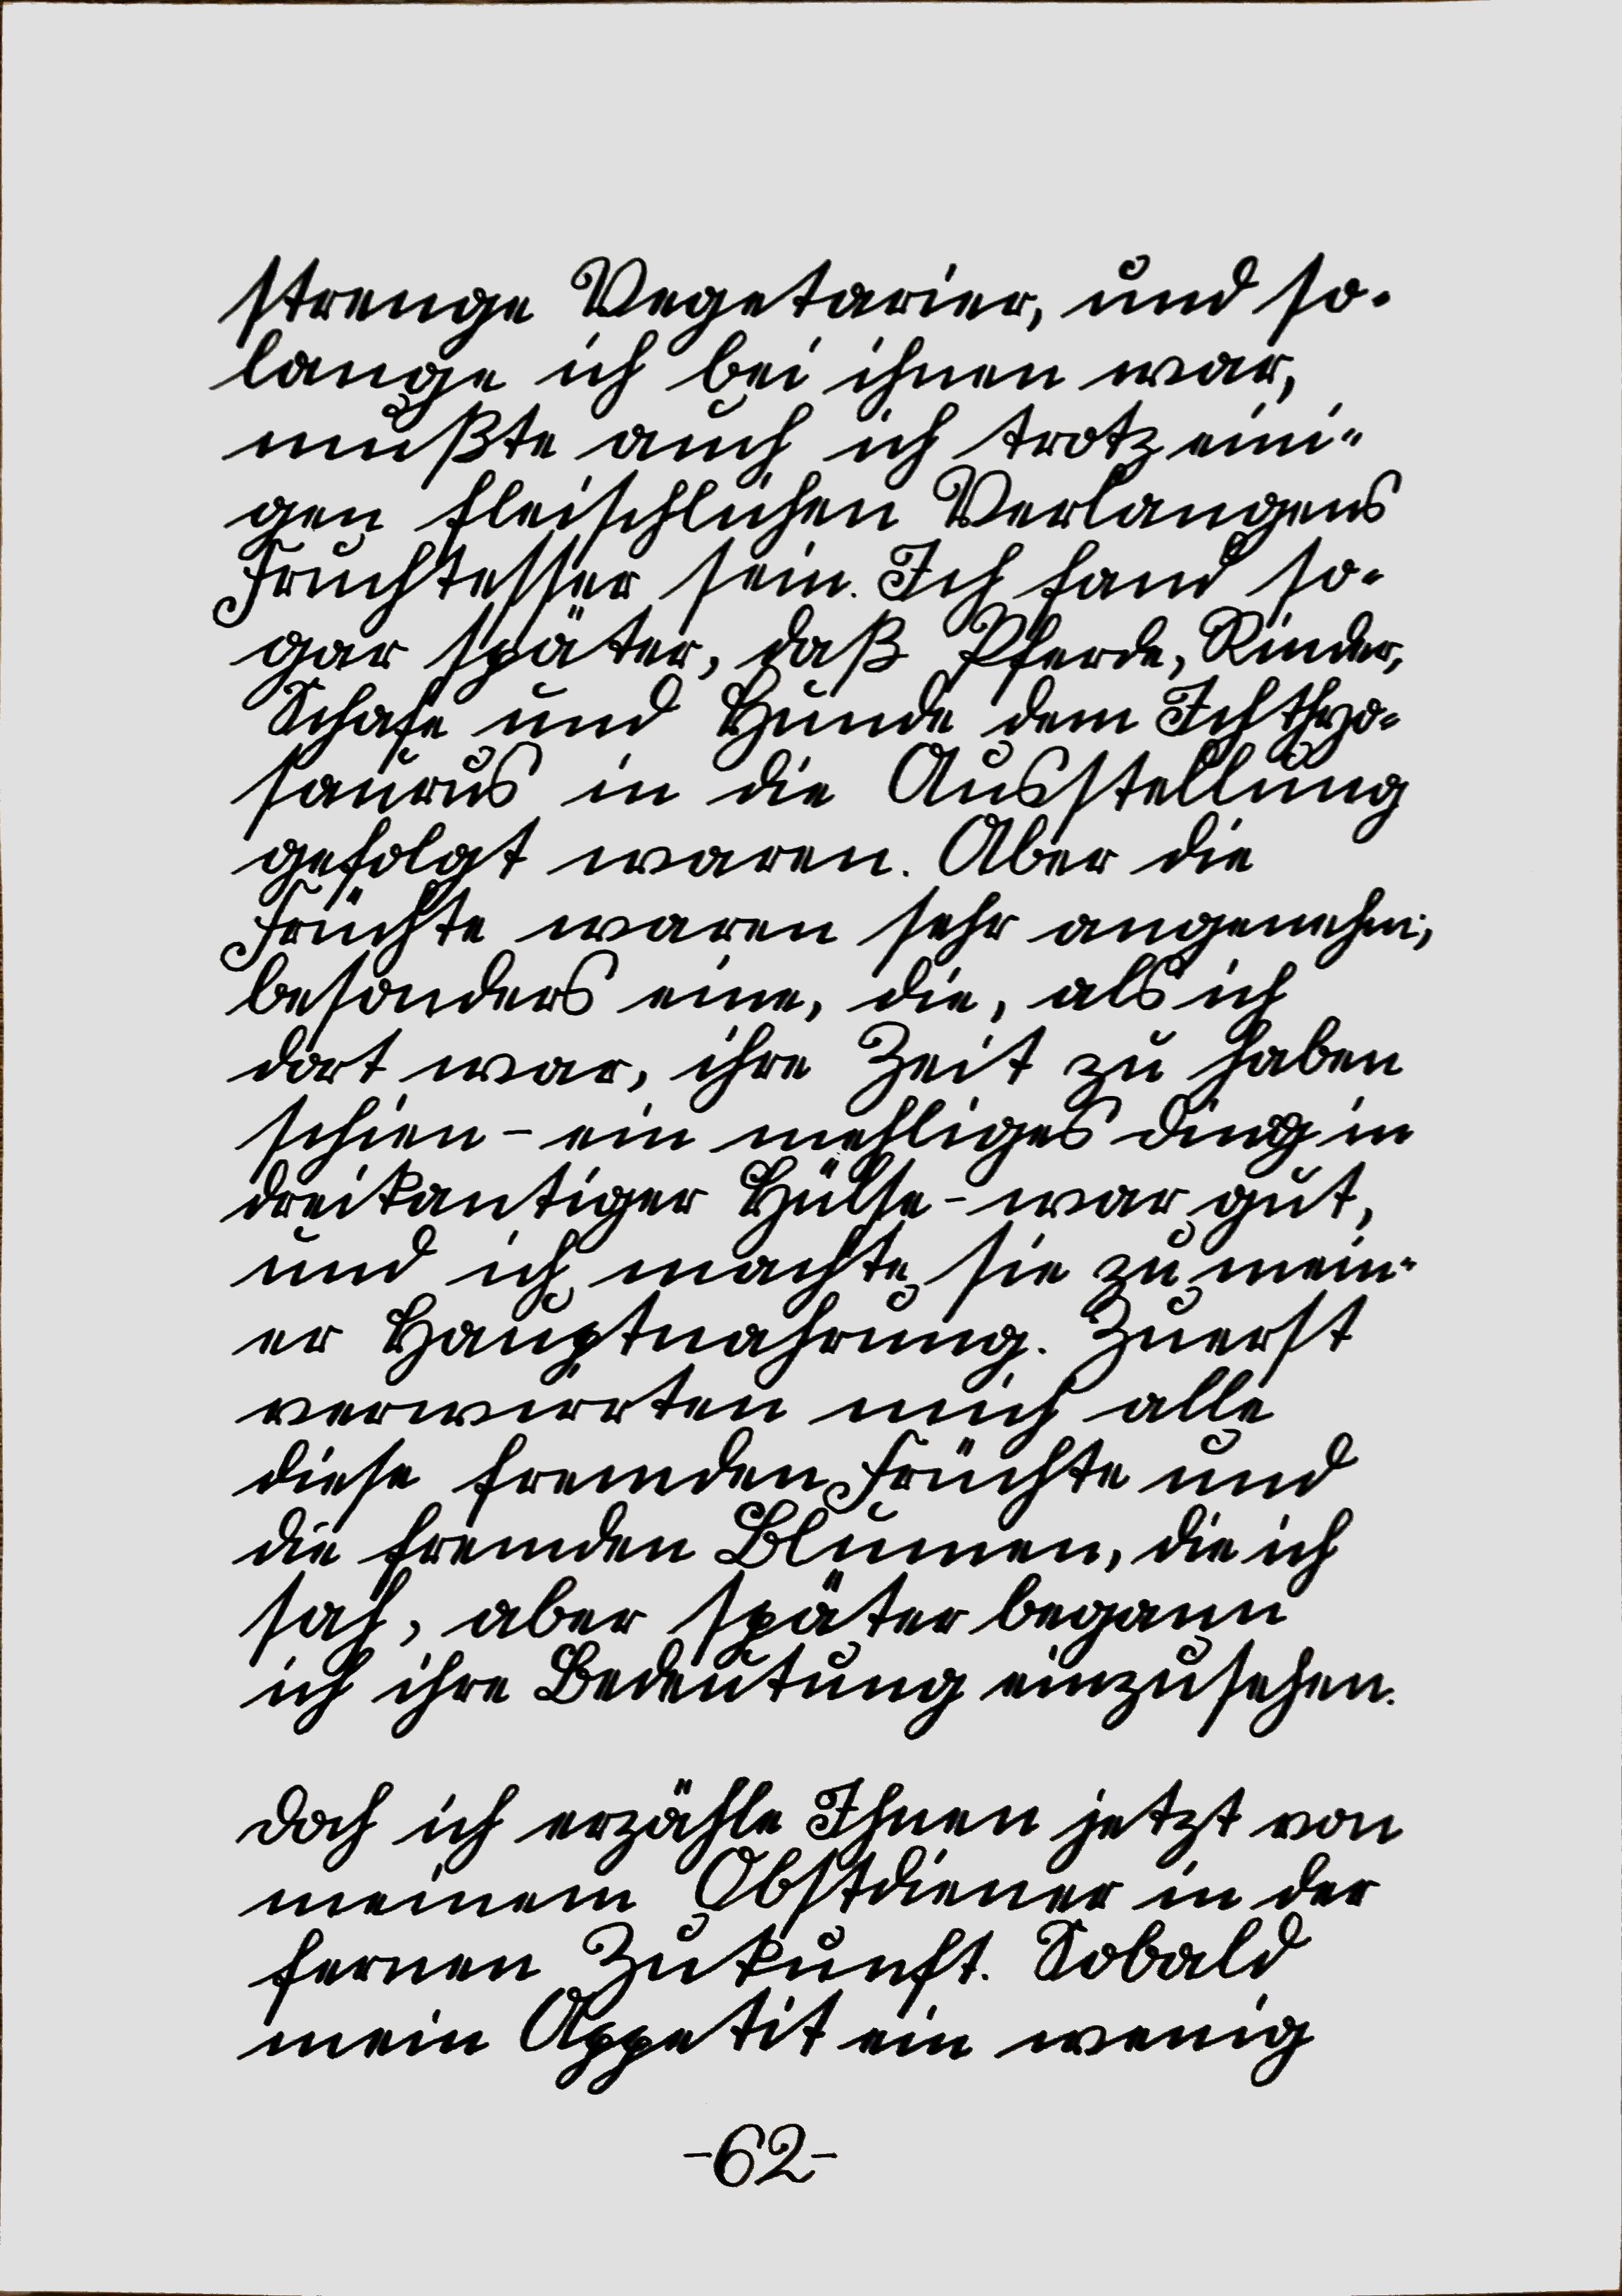 strenge Vegetarier, und so-
lange ich bei ihnen war,
mußte auch ich trotz eini-
gen fleischlichen Verlangens
Fruchtesser sein. Ich fand so-
gar später, daß Pferde, Rinder,
Schafe und Hunde dem Ichthyo-
saurus in die Ausstellung
gefolgt waren. Aber die
Früchte waren sehr angenehm;
besonders eine, die, als ich
dort war, ihre Zeit zu haben
schien - ein mehliges Ding in
dreikantiger Hülse - war gut,
und ich machte sie zu mein-
er Hauptnahrung. Zuerst
verwirrten mich alle
diese fremden Früchte und
die fremden Blumen, die ich
sah, aber später begann
ich ihre Bedeutung einzusehen.
Doch ich erzähle Ihnen jetzt von
meinem Obstdiener in der
fernen Zukunft. Sobald
mein Appetit ein wenig
-62-